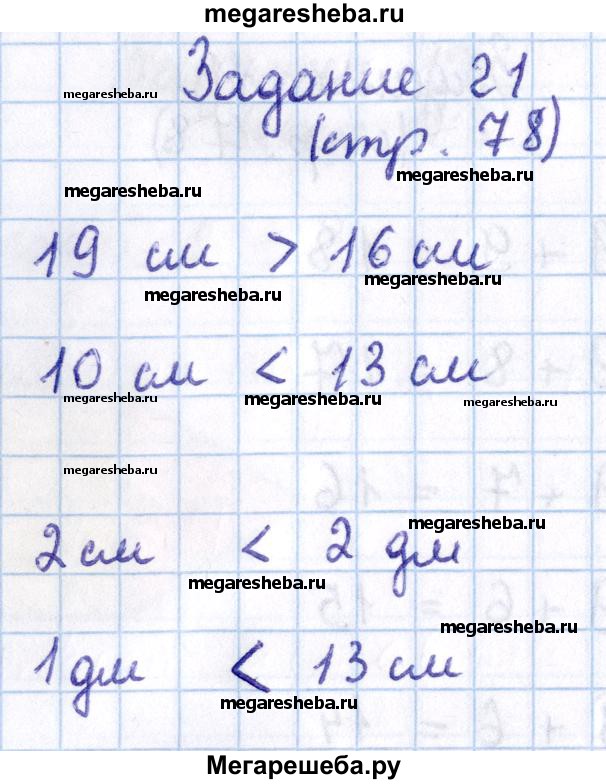 megaresheba.ru
Задание 21
megaresheba.ru
(стр. 78)
megaresheba.ru
megaresheba.ru
19 см > 16 см
megaresheba.ru
megaresheba.ru
10 см < 13 см
megaresheba.ru
megaresheba.ru
megaresheba.ru
megaresheba.ru
megaresheba.ru
2 см < 2 дм
megaresheba.ru
megaresheba.ru
1 дм < 13 см
megaresheba.ru
Мегарешеба.ру